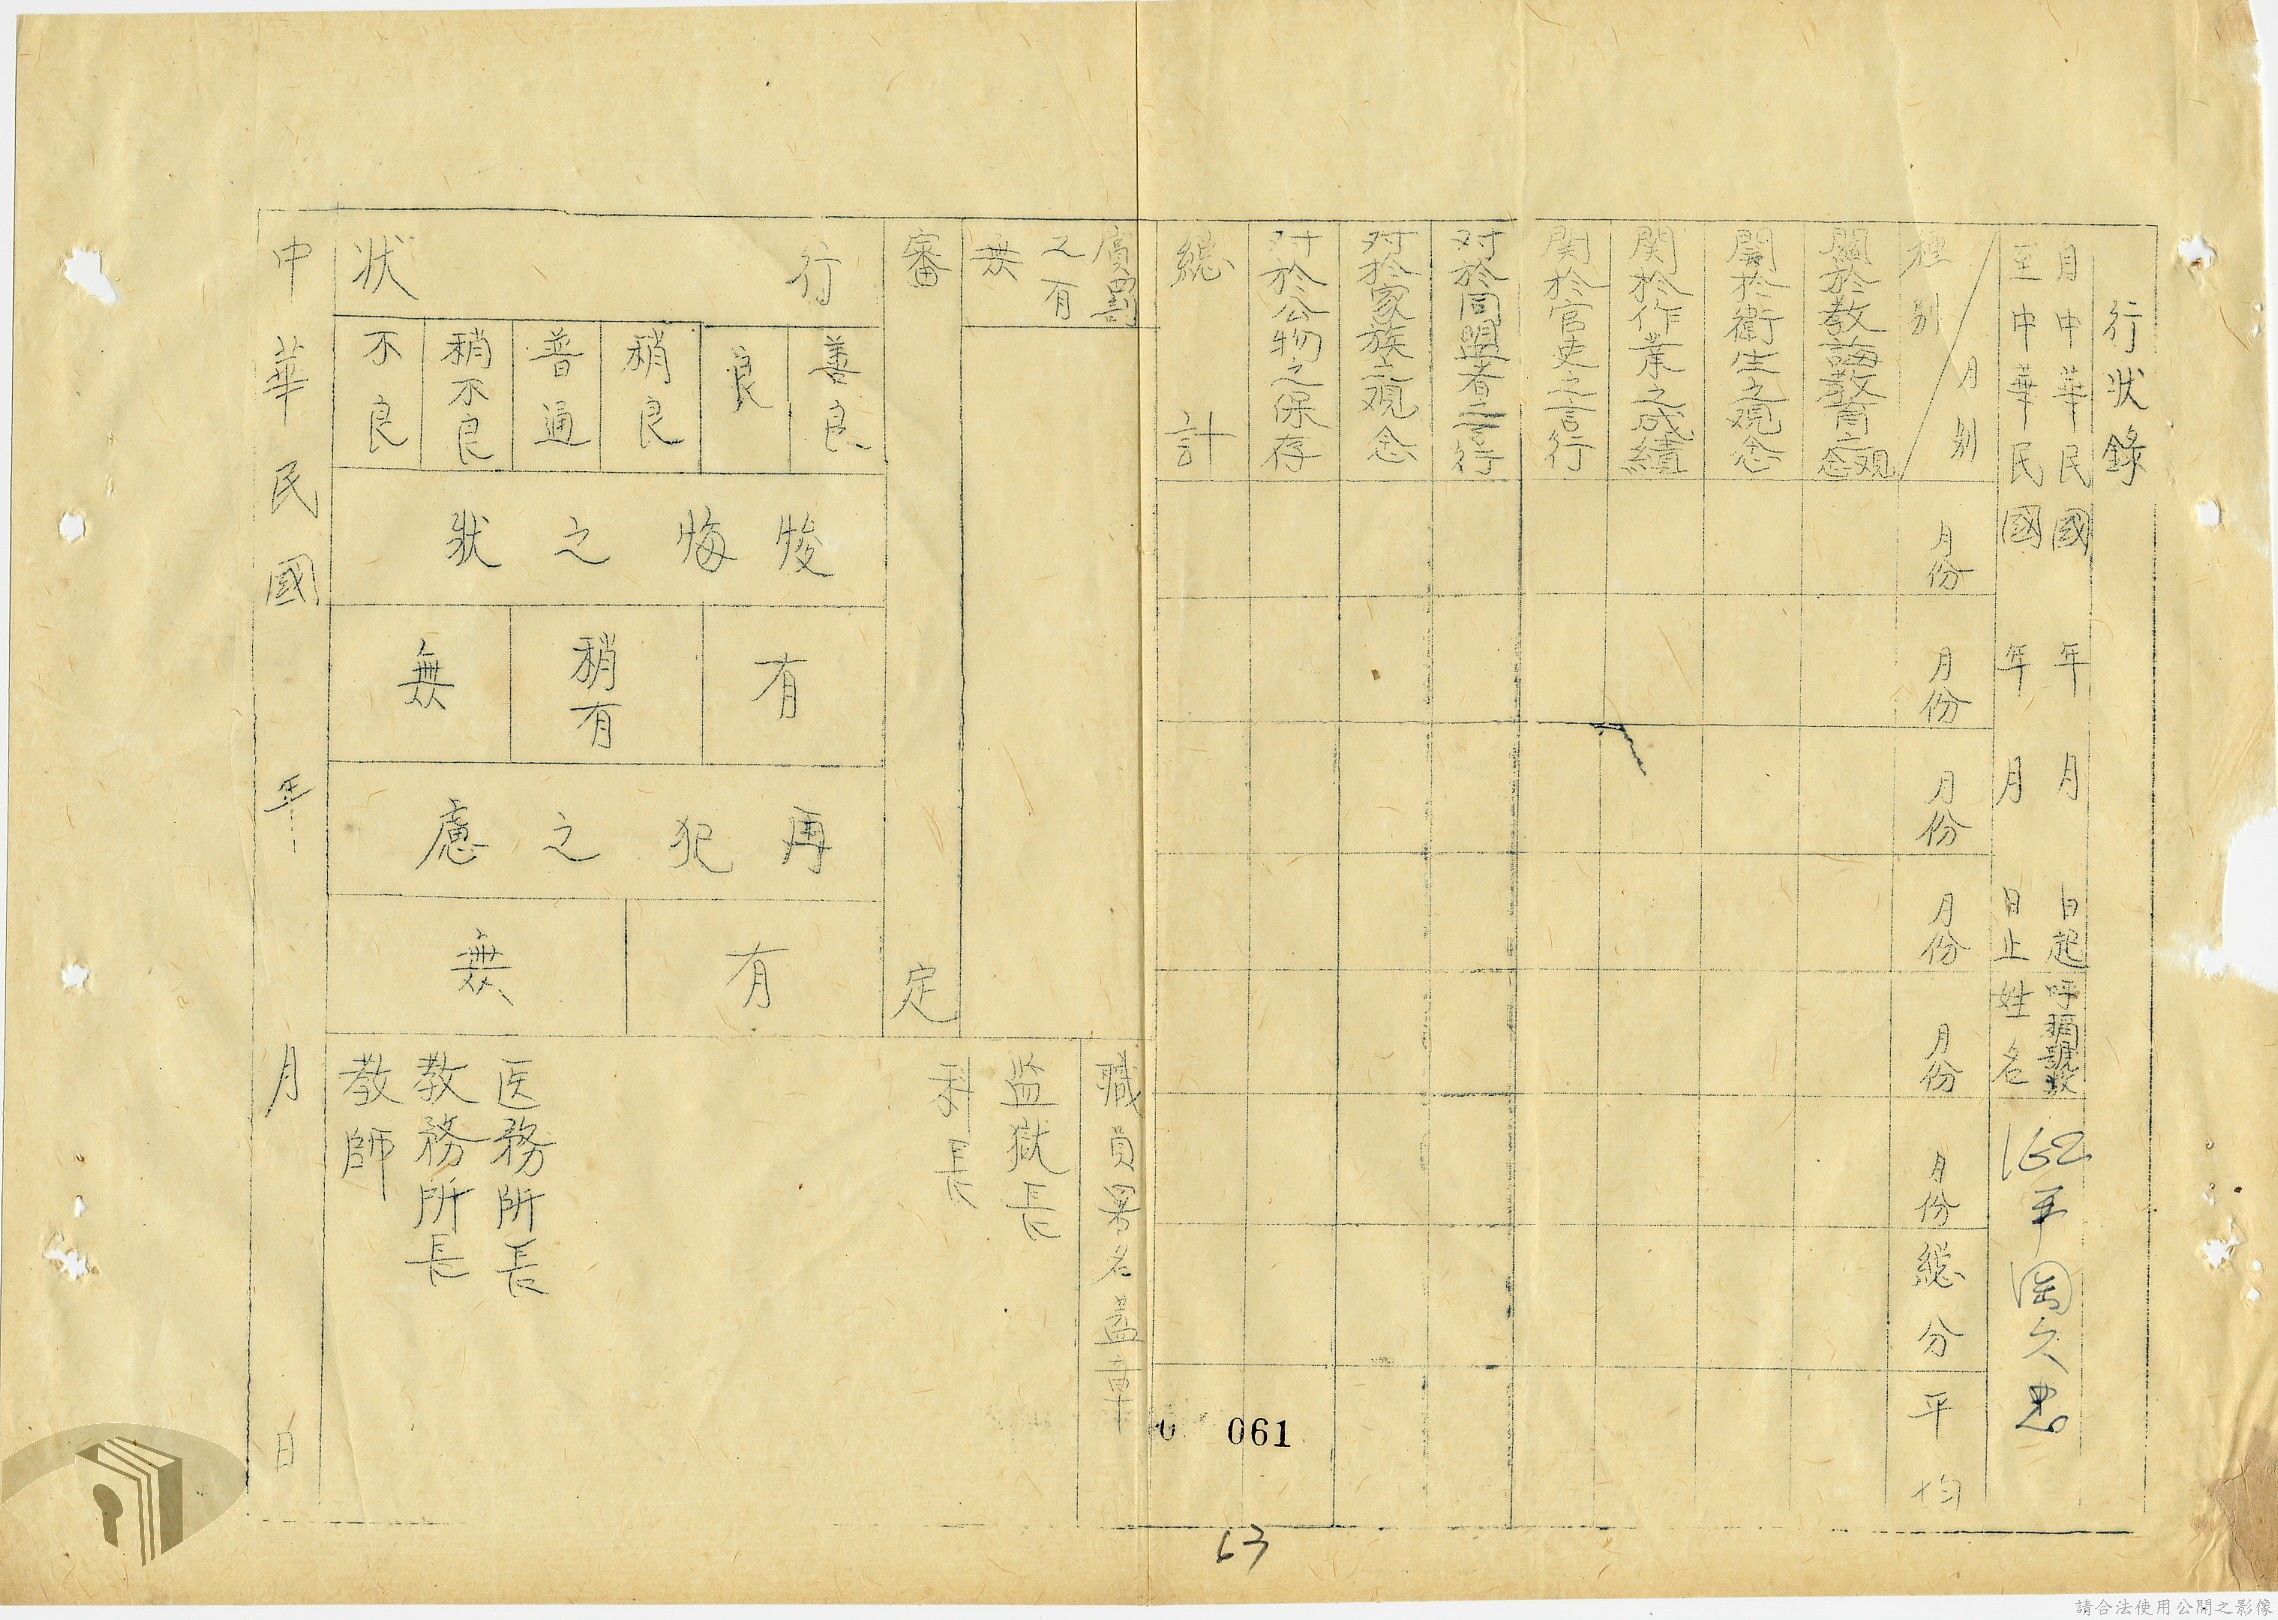 行狀錄
自中華民國 年 月 日起
至中華民國 年 月 日止
呼稱號數 162
姓名 平岡久忠
種別 月別
月份
月份
月份
月份
月份
月份
総分
平均
關於教誨教育之观念
関於衛生之观念
関於作業之成績
関於官吏之言行
对於同盟者之言行
对於家族之观念
对於公物之保存
総計
賞罰之有無
審定
行狀
善良
良
稍良
普通
稍不良
不良
悛悔之狀
有
稍有
無
再犯之慮
有
無
職員署名蓋章
监獄長
科長
医務所長
教務所長
教師
中華民國 年 月 日
061
63
請合法使用公開之影像